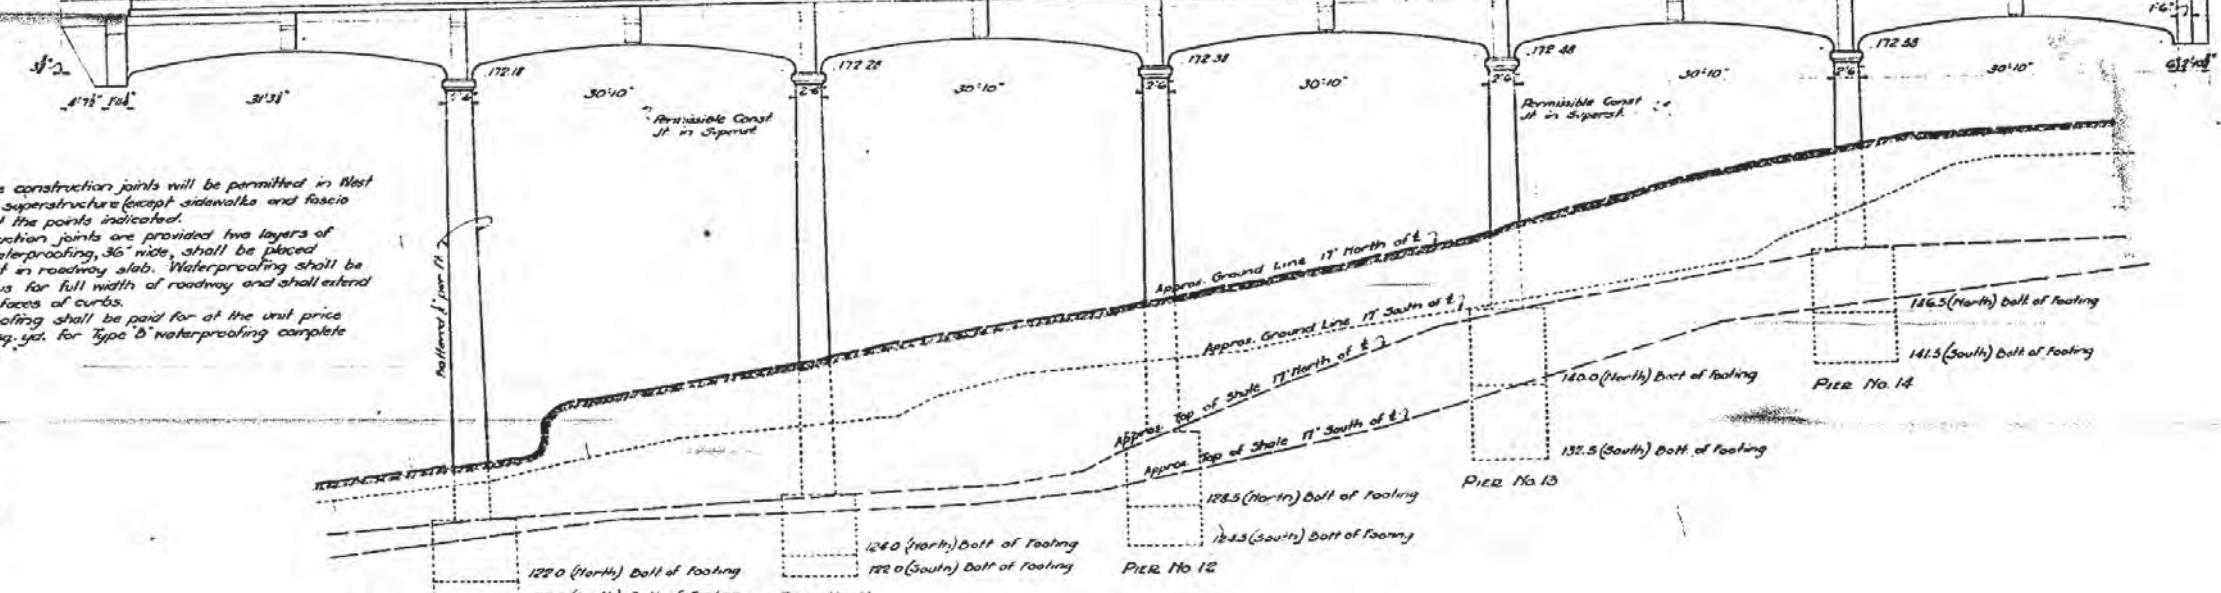 1'-6"
172.18
172.28
172.38
172.48
172.58
2'-6"
2'-6"
2'-6"
2'-6"
2'-6"
4'-7½"
30'-10"
30'-10"
30'-10"
30'-10"
30'-10"
Permissible Const
Jt. in Superst.
Permissible Const
Jt. in Superst.
construction joints will be permitted in West
superstructure (except sidewalks and fascia
the points indicated.
uction joints are provided two layers of
aterproofing, 36" wide, shall be placed
t in roadway slab. Waterproofing shall be
us for full width of roadway and shall extend
faces of curbs.
ofing shall be paid for at the unit price
sq. yd. for Type "B" waterproofing complete
Battered per ft.
Approx. Ground Line 17' North of ℄
Approx. Ground Line 17' South of ℄
Approx. Top of Shale 17' North of ℄
Approx. Top of Shale 17' South of ℄
146.5 (North) Bott. of Footing
141.5 (South) Bott. of Footing
PIER No. 14
140.0 (North) Bott of Footing
132.5 (South) Bott. of Footing
PIER No. 13
128.5 (North) Bott of Footing
124.5 (South) Bott of Footing
PIER No. 12
(North) Bott of Footing
122.0 (South) Bott of Footing
122.0 (North) Bott of Footing